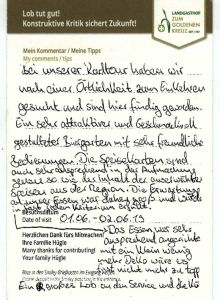 Lob tut gut!
Konstruktive Kritik sichert Zukunft!
LANDGASTHOF
ZUM
GOLDENEN
KREUZ
Mein Kommentar / Meine Tipps
My comments / tips
Bei unserer Radtour haben wir
nach einer Örtlichkeit zum Einkehren
gesucht und sind hier fündig geworden.
Ein sehr attraktiver und geschmackvoll
gestalteter Biergarten mit sehr freundlicher
Bedienungen. Die Speisekarten sind
auch sehr ansprechend in der Aufmachung
genau so wie das Inhalt der ausgewählten
Speisen aus der Region. Die Erwartung
an unser Essen war daher groß und
Besuchsdatum
Date of visit
01.06. - 02.06.13
Herzlichen Dank fürs Mitmachen!
Ihre Familie Hügle
Many thanks for contributing!
Your family Hügle
Das Essen war sehr
ansprechend angerichtet
mit ein klein wenig
mehr Deko wäre es
nicht mehr zu toppen
Ein großes Lob an den Service und die